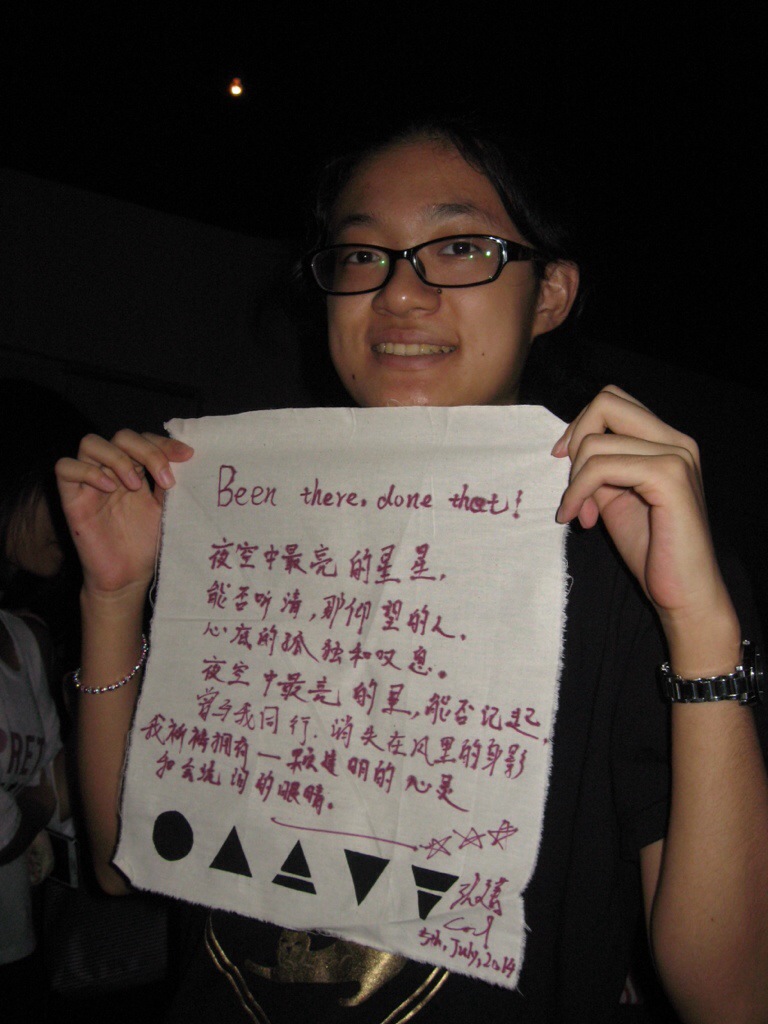 Been there. done that!
夜空中最亮的星星,
能否听清,那仰望的人.
心底的孤独和叹息。
夜空中最亮的星,能否记起
曾与我同行.消失在风里的身影.
我祈祷拥有一颗透明的心灵
和会流泪的眼睛。
5th, July, 2014